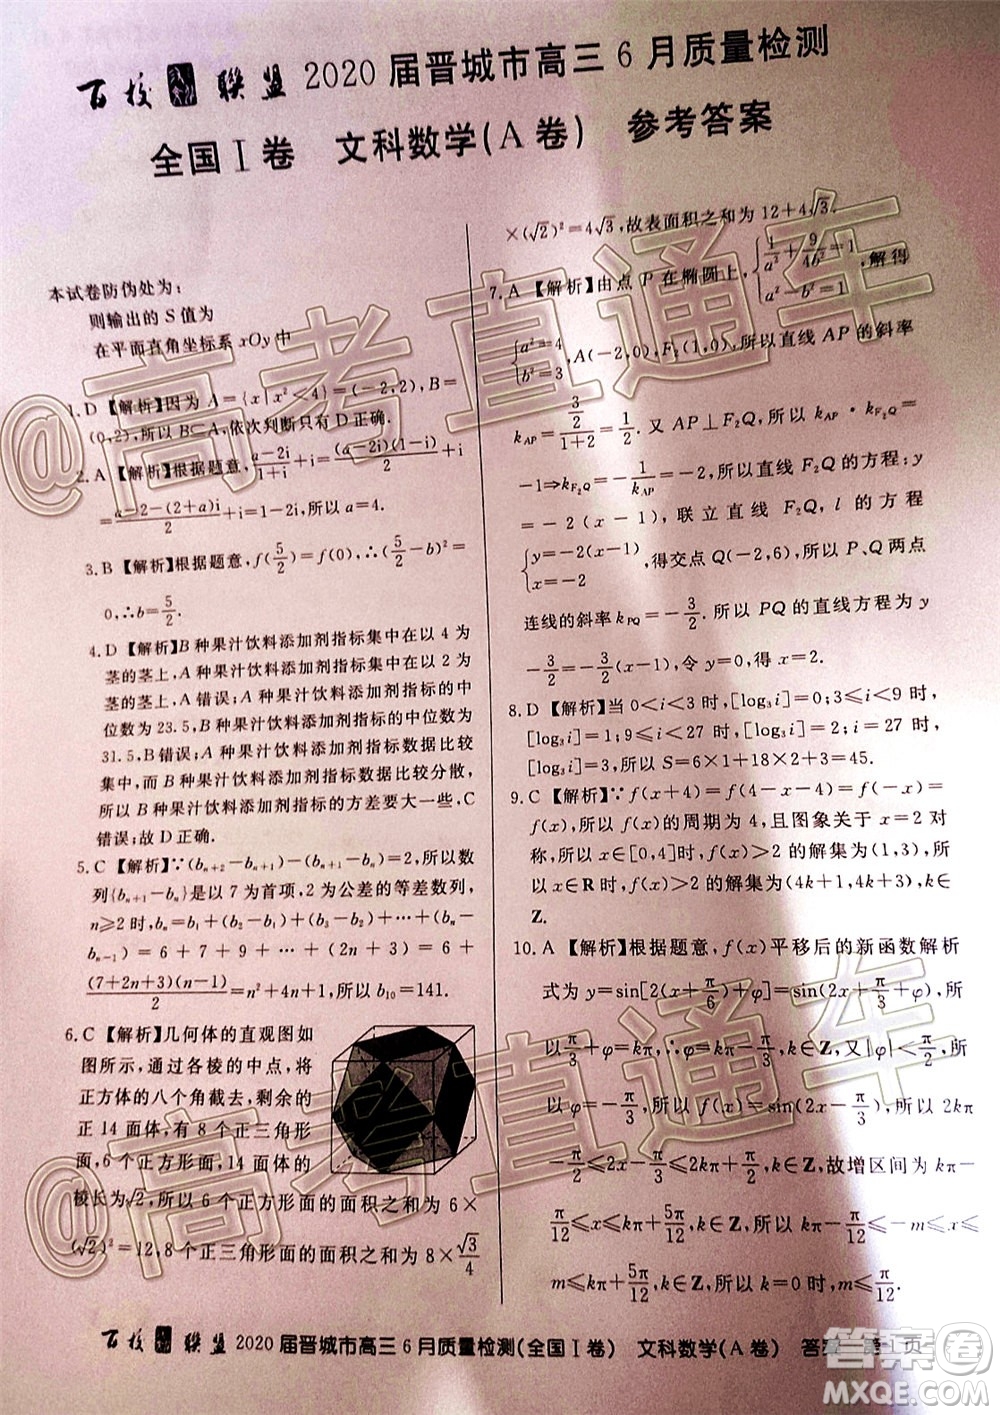 百校联盟 2020届晋城市高三6月质量检测
全国Ⅰ卷 文科数学(A卷) 参考答案
本试卷防伪处为:
则输出的S值为
在平面直角坐标系xOy中
1.D 【解析】因为A={x|x²<4}=(-2,2),B=
(0,2),所以B⊂A,依次判断只有D正确.
2.A 【解析】根据题意,(a-2i)/(1+i)+i=(a-2i)(1-i)/2+i
=(a-2-(2+a)i)/2+i=1-0i,所以a=4.
3.B 【解析】根据题意,f(5/2)=f(0),∴(5/2-b)²=
0,∴b=5/2.
4.D 【解析】B种果汁饮料添加剂指标集中在以4为
茎的茎上,A种果汁饮料添加剂指标集中在以2为
茎的茎上,A错误;A种果汁饮料添加剂指标的中
位数为23.5,B种果汁饮料添加剂指标的中位数为
31.5,B错误;A种果汁饮料添加剂指标数据比较
集中,而B种果汁饮料添加剂指标数据比较分散,
所以B种果汁饮料添加剂指标的方差要大一些,C
错误;故D正确.
5.C 【解析】∵(bₙ₊₂-bₙ₊₁)-(bₙ₊₁-bₙ)=2,所以数
列{bₙ₊₁-bₙ}是以7为首项,2为公差的等差数列,
n≥2时,bₙ=b₁+(b₂-b₁)+(b₃-b₂)+…+(bₙ-
bₙ₋₁)=6+7+9+…+(2n+3)=6+
(7+2n+3)(n-1)/2=n²+4n+1,所以b₁₀=141.
6.C 【解析】几何体的直观图如
图所示,通过各棱的中点,将
正方体的八个角截去,剩余的
正14面体,有8个正三角形
面,6个正方形面,14面体的
棱长为√2,所以6个正方形面的面积之和为6×
(√2)²=12,8个正三角形面的面积之和为8×√3/4
×(√2)²=4√3,故表面积之和为12+4√3.
7.A 【解析】由点P在椭圆上,{1/a²+9/(4b²)=1 a²-b²=1,解得
{a²=4 b²=3,A(-2,0),F₂(1,0),所以直线AP的斜率
k_AP=(3/2)/(1+2)=1/2.又AP⊥F₂Q,所以k_AP·k_F₂Q=
-1⇒k_F₂Q=-1/k_AP=-2,所以直线F₂Q的方程:y
=-2(x-1),联立直线F₂Q,l的方程
{y=-2(x-1) x=-2,得交点Q(-2,6),所以P、Q两点
连线的斜率k_PQ=-3/2.所以PQ的直线方程为y
-3/2=-3/2(x-1),令y=0,得x=2.
8.D 【解析】当0<i<3时,[log₃i]=0;3≤i<9时,
[log₃i]=1;9≤i<27时,[log₃i]=2;i=27时,
[log₃i]=3,所以S=6×1+18×2+3=45.
9.C 【解析】∵f(x+4)=f(4-x-4)=f(-x)=
f(x),所以f(x)的周期为4,且图象关于x=2对
称,所以在[0,4]上,f(x)>2的解集为(1,3),所
以x∈R时,f(x)>2的解集为(4k+1,4k+3),k∈
Z.
10.A 【解析】根据题意,f(x)平移后的新函数解析
式为y=sin[2(x+π/6)+φ]=sin(2x+π/3+φ),所
以π/3+φ=kπ,∴φ=kπ-π/3,k∈Z,又|φ|<π/2,所
以φ=-π/3,所以f(x)=sin(2x-π/3),所以2kπ
-π/2≤2x-π/3≤2kπ+π/2,k∈Z,故增区间为kπ-
π/12≤x≤kπ+5π/12,k∈Z,所以kπ-π/12≤-m≤x≤
m≤kπ+5π/12,k∈Z,所以k=0时,m≤π/12.
百校联盟 2020届晋城市高三6月质量检测(全国Ⅰ卷) 文科数学(A卷) 答案 第1页
@高考直通车
@高考直通车
答案圈
MXQE.COM